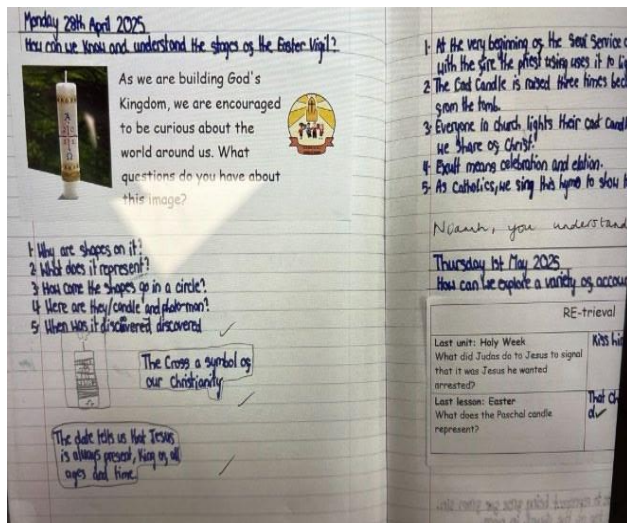 Monday 28th April 2025
How can we know and understand the stages of the Easter Vigil?
As we are building God's
Kingdom, we are encouraged
to be curious about the
world around us. What
questions do you have about
this image?
1. Why are shapes on it?
2. What does it represent?
3. How come the shapes go in a circle?
4. Here are they/candle and
5. When was it discovered
The Cross a symbol of
our Christianity
The date tells us that Jesus
is always present, King of all
ages and time.
1. At the very beginning of the service
with the fire the priest uses it to
2. The Candle is raised three times
from the tomb.
3. Everyone in church lights their
we share of Christ.
4. Exult means celebration and elation.
5. As Catholics, we sing this hymn to show
Niamh, you understand
Thursday 1st May 2025
How can we explore a variety of
RE-trieval
Last unit: Holy Week
What did Judas do to Jesus to signal
that it was Jesus he wanted
arrested?
Kiss
Last lesson: Easter
What does the Paschal candle
represent?
That